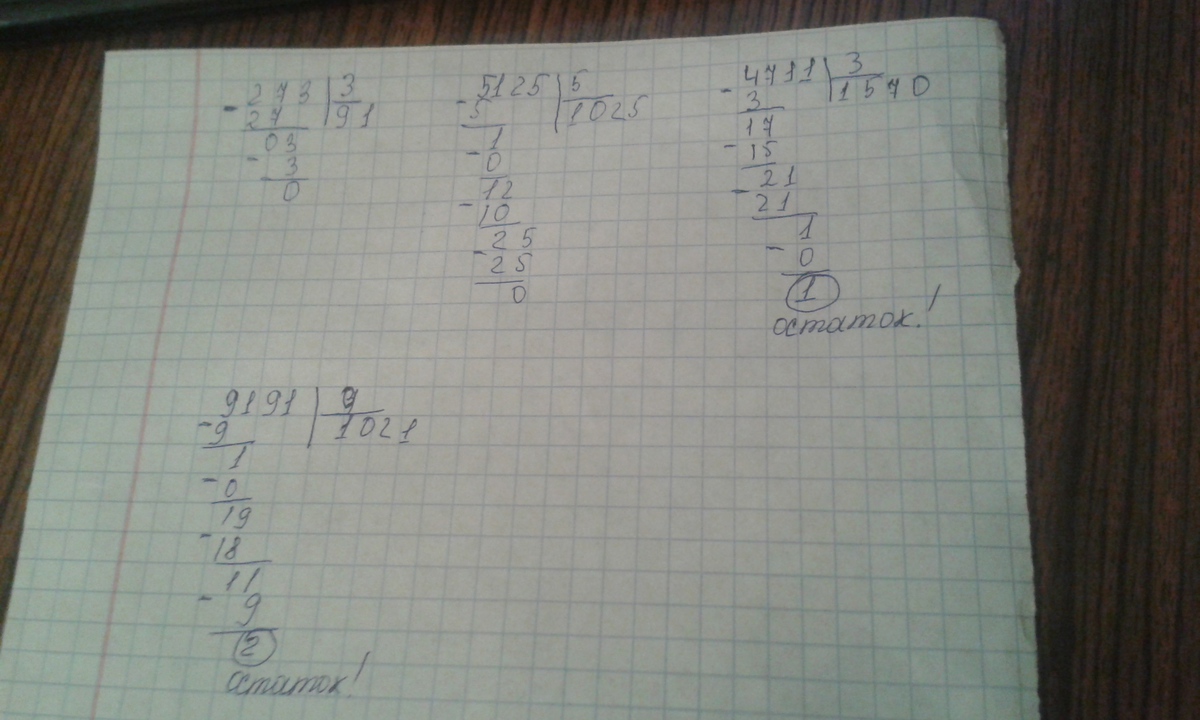 - 273 | 3
27 | 91
03
- 3
0
- 5125 | 5
5 | 1025
1
- 0
12
- 10
25
- 25
0
- 4711 | 3
3 | 1570
17
- 15
21
- 21
1
- 0
1
остаток!
- 9191 | 9
9 | 1021
1
- 0
19
- 18
11
- 9
2
остаток!